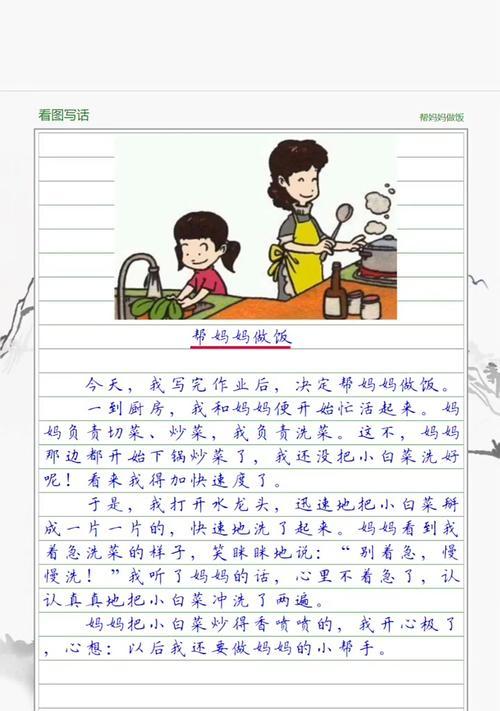 看图写话
帮妈妈做饭
帮妈妈做饭
今天，我写完作业后，决定帮妈妈做饭。
一到厨房，我和妈妈便开始忙活起来。妈
妈负责切菜、炒菜，我负责洗菜。这不，妈妈
那边都开始下锅炒菜了，我还没把小白菜洗好
呢！看来我得加快速度了。
于是，我打开水龙头，迅速地把小白菜掰
成一片一片的，快速地洗了起来。妈妈看到我
着急洗菜的样子，笑眯眯地说：“别着急，慢
慢洗！”我听了妈妈的话，心里不着急了，认
认真真地把小白菜冲洗了两遍。
妈妈把小白菜炒得香喷喷的，我开心极了
，心想：以后我还要做妈妈的小帮手。